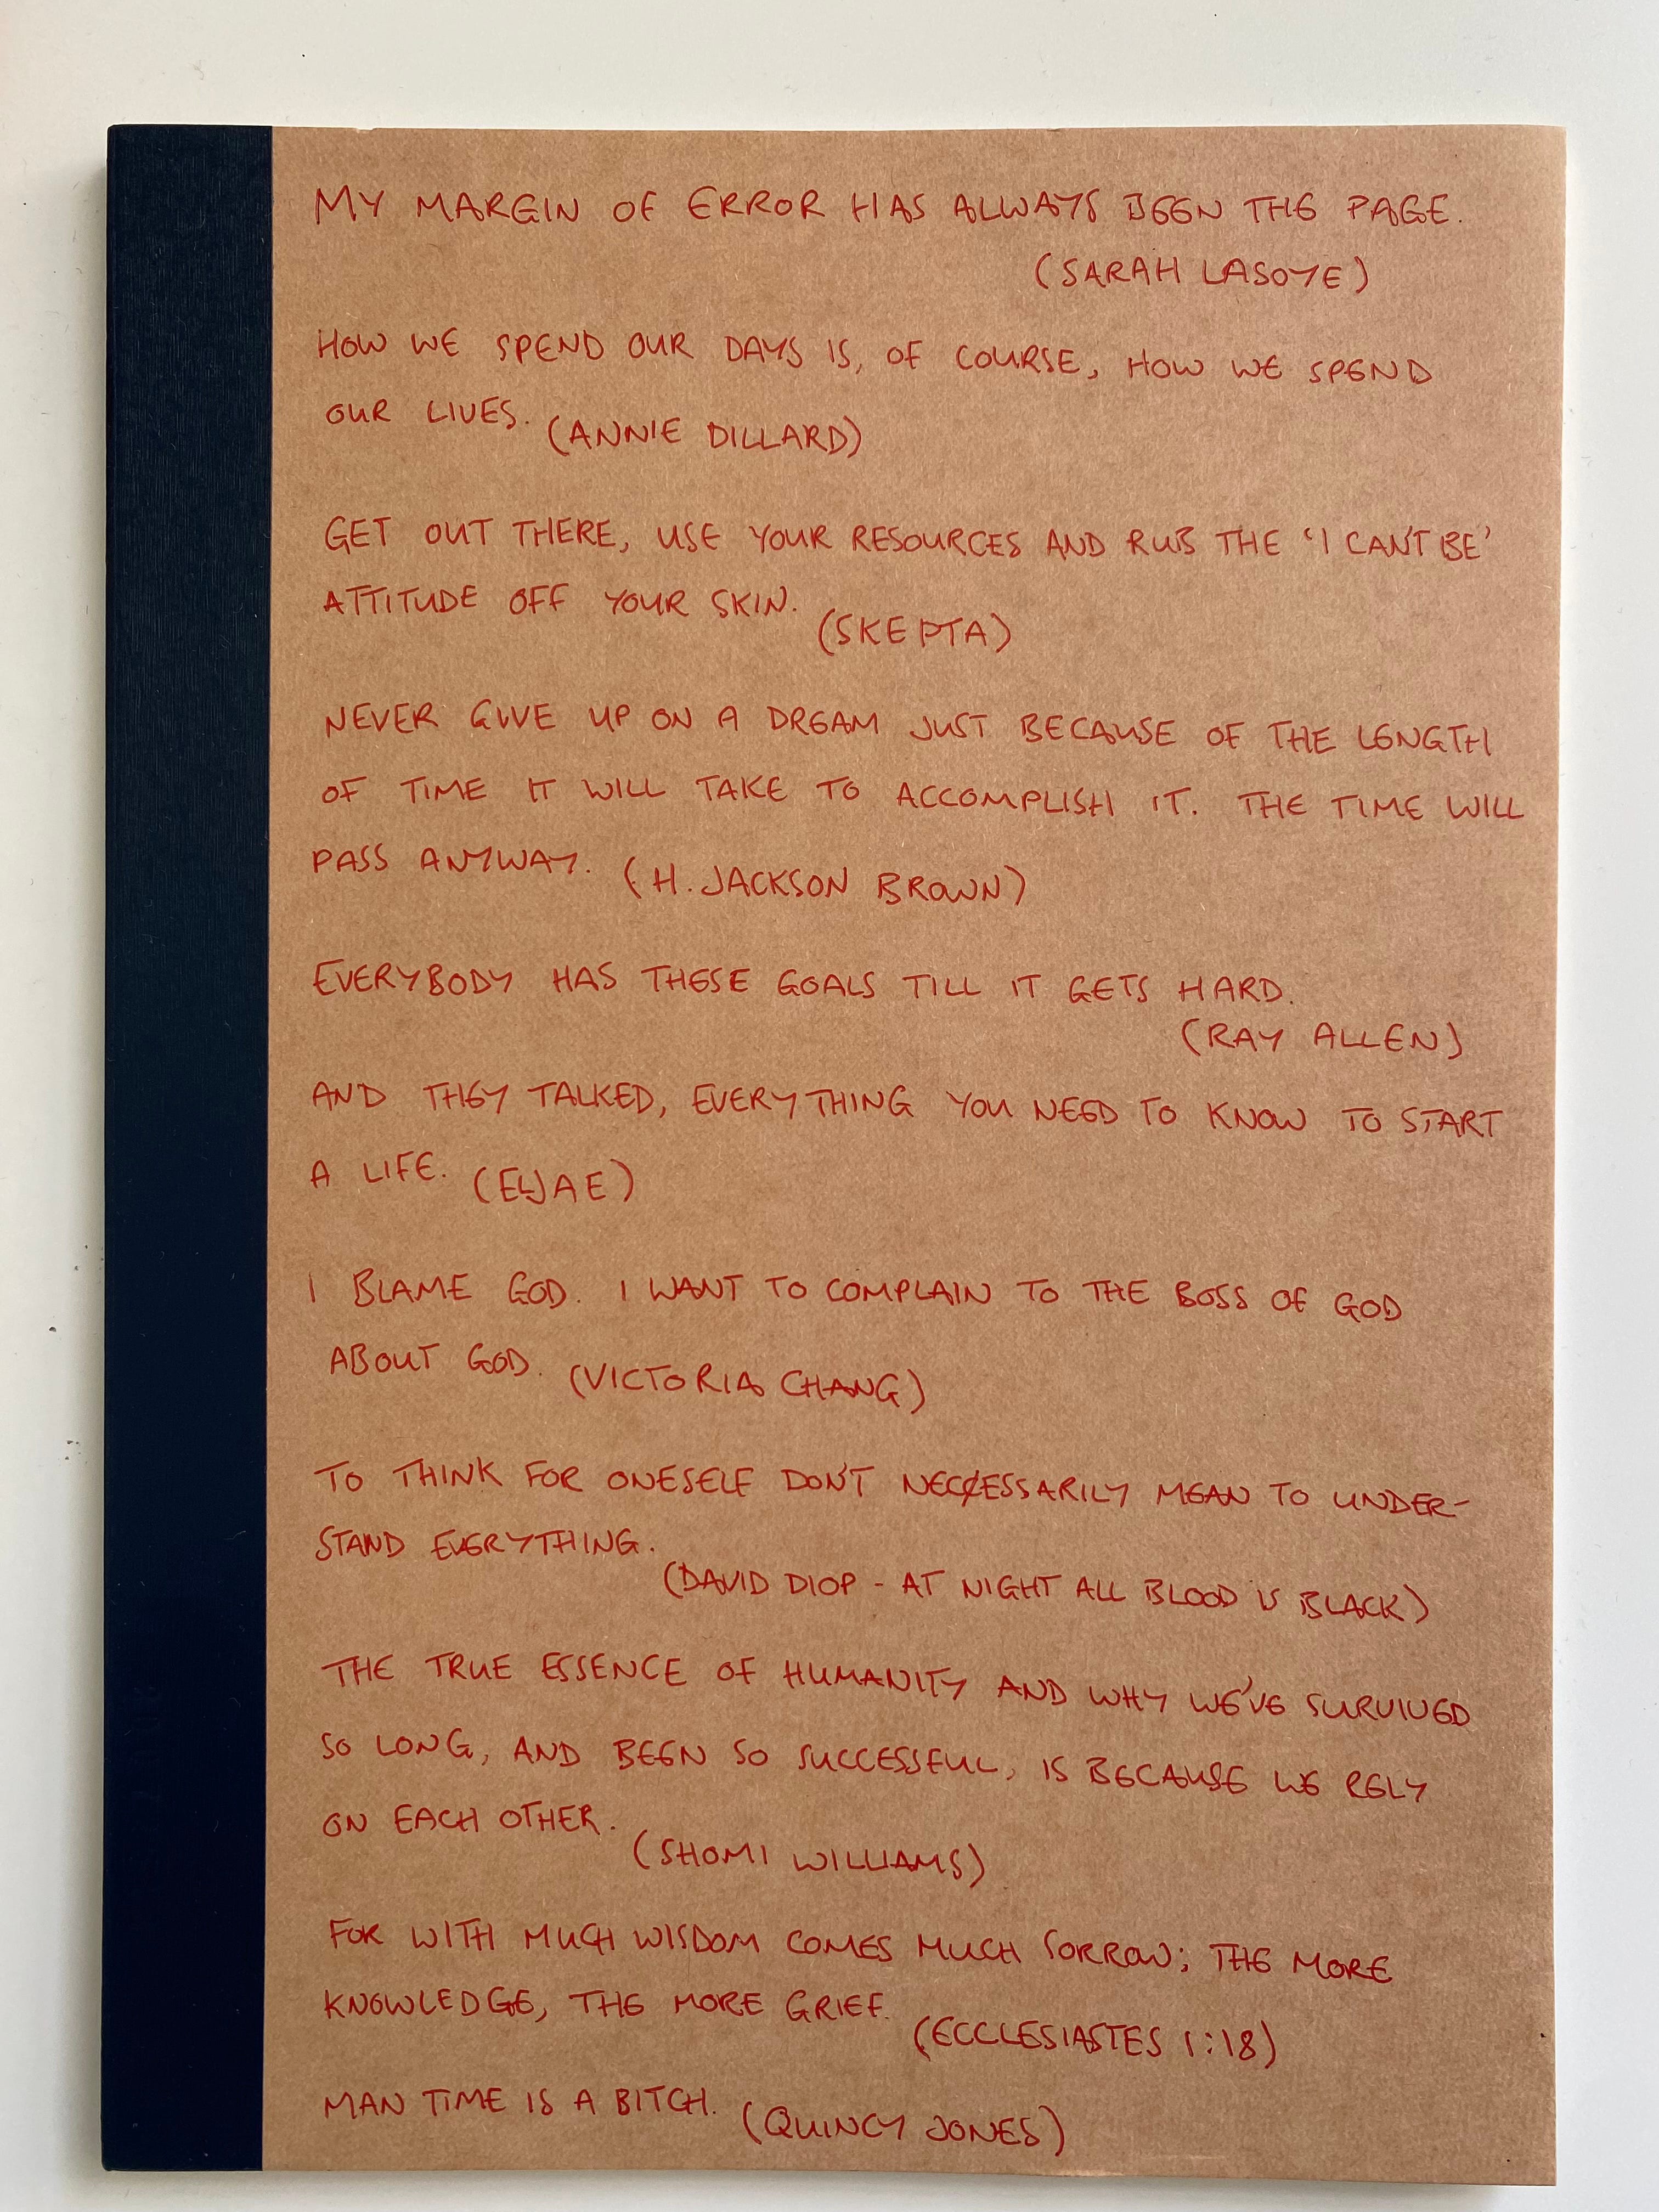 MY MARGIN OF ERROR HAS ALWAYS BEEN THE PAGE.
(SARAH LASOYE)
HOW WE SPEND OUR DAYS IS, OF COURSE, HOW WE SPEND
OUR LIVES. (ANNIE DILLARD)
GET OUT THERE, USE YOUR RESOURCES AND RUB THE 'I CAN'T BE'
ATTITUDE OFF YOUR SKIN. (SKEPTA)
NEVER GIVE UP ON A DREAM JUST BECAUSE OF THE LENGTH
OF TIME IT WILL TAKE TO ACCOMPLISH IT. THE TIME WILL
PASS ANYWAY. (H. JACKSON BROWN)
EVERYBODY HAS THESE GOALS TILL IT GETS HARD.
(RAY ALLEN)
AND THEY TALKED, EVERYTHING YOU NEED TO KNOW TO START
A LIFE.
I BLAME GOD. I WANT TO COMPLAIN TO THE BOSS OF GOD
ABOUT GOD. (VICTORIA CHANG)
TO THINK FOR ONESELF DON'T NECESSARILY MEAN TO UNDER-
STAND EVERYTHING.
(DAVID DIOP - AT NIGHT ALL BLOOD IS BLACK)
THE TRUE ESSENCE OF HUMANITY AND WHY WE'VE SURVIVED
SO LONG, AND BEEN SO SUCCESSFUL, IS BECAUSE WE RELY
ON EACH OTHER.
(SHOMI WILLIAMS)
FOR WITH MUCH WISDOM COMES MUCH SORROW; THE MORE
KNOWLEDGE, THE MORE GRIEF. (ECCLESIASTES 1:18)
MAN TIME IS A BITCH. (QUINCY JONES)